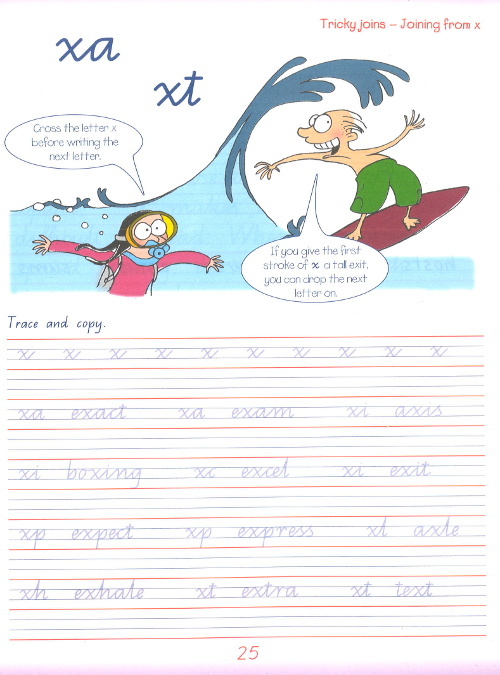 Tricky joins – Joining from x
xa
xt
Cross the letter x
before writing the
next letter.
If you give the first
stroke of x a tall exit,
you can drop the next
letter on.
Trace and copy.
x x x x x x x x x x
xa exact xa exam xi axis
xi boxing xc excel xi exit
xp expect xp express xl axle
xh exhale xt extra xt text
25